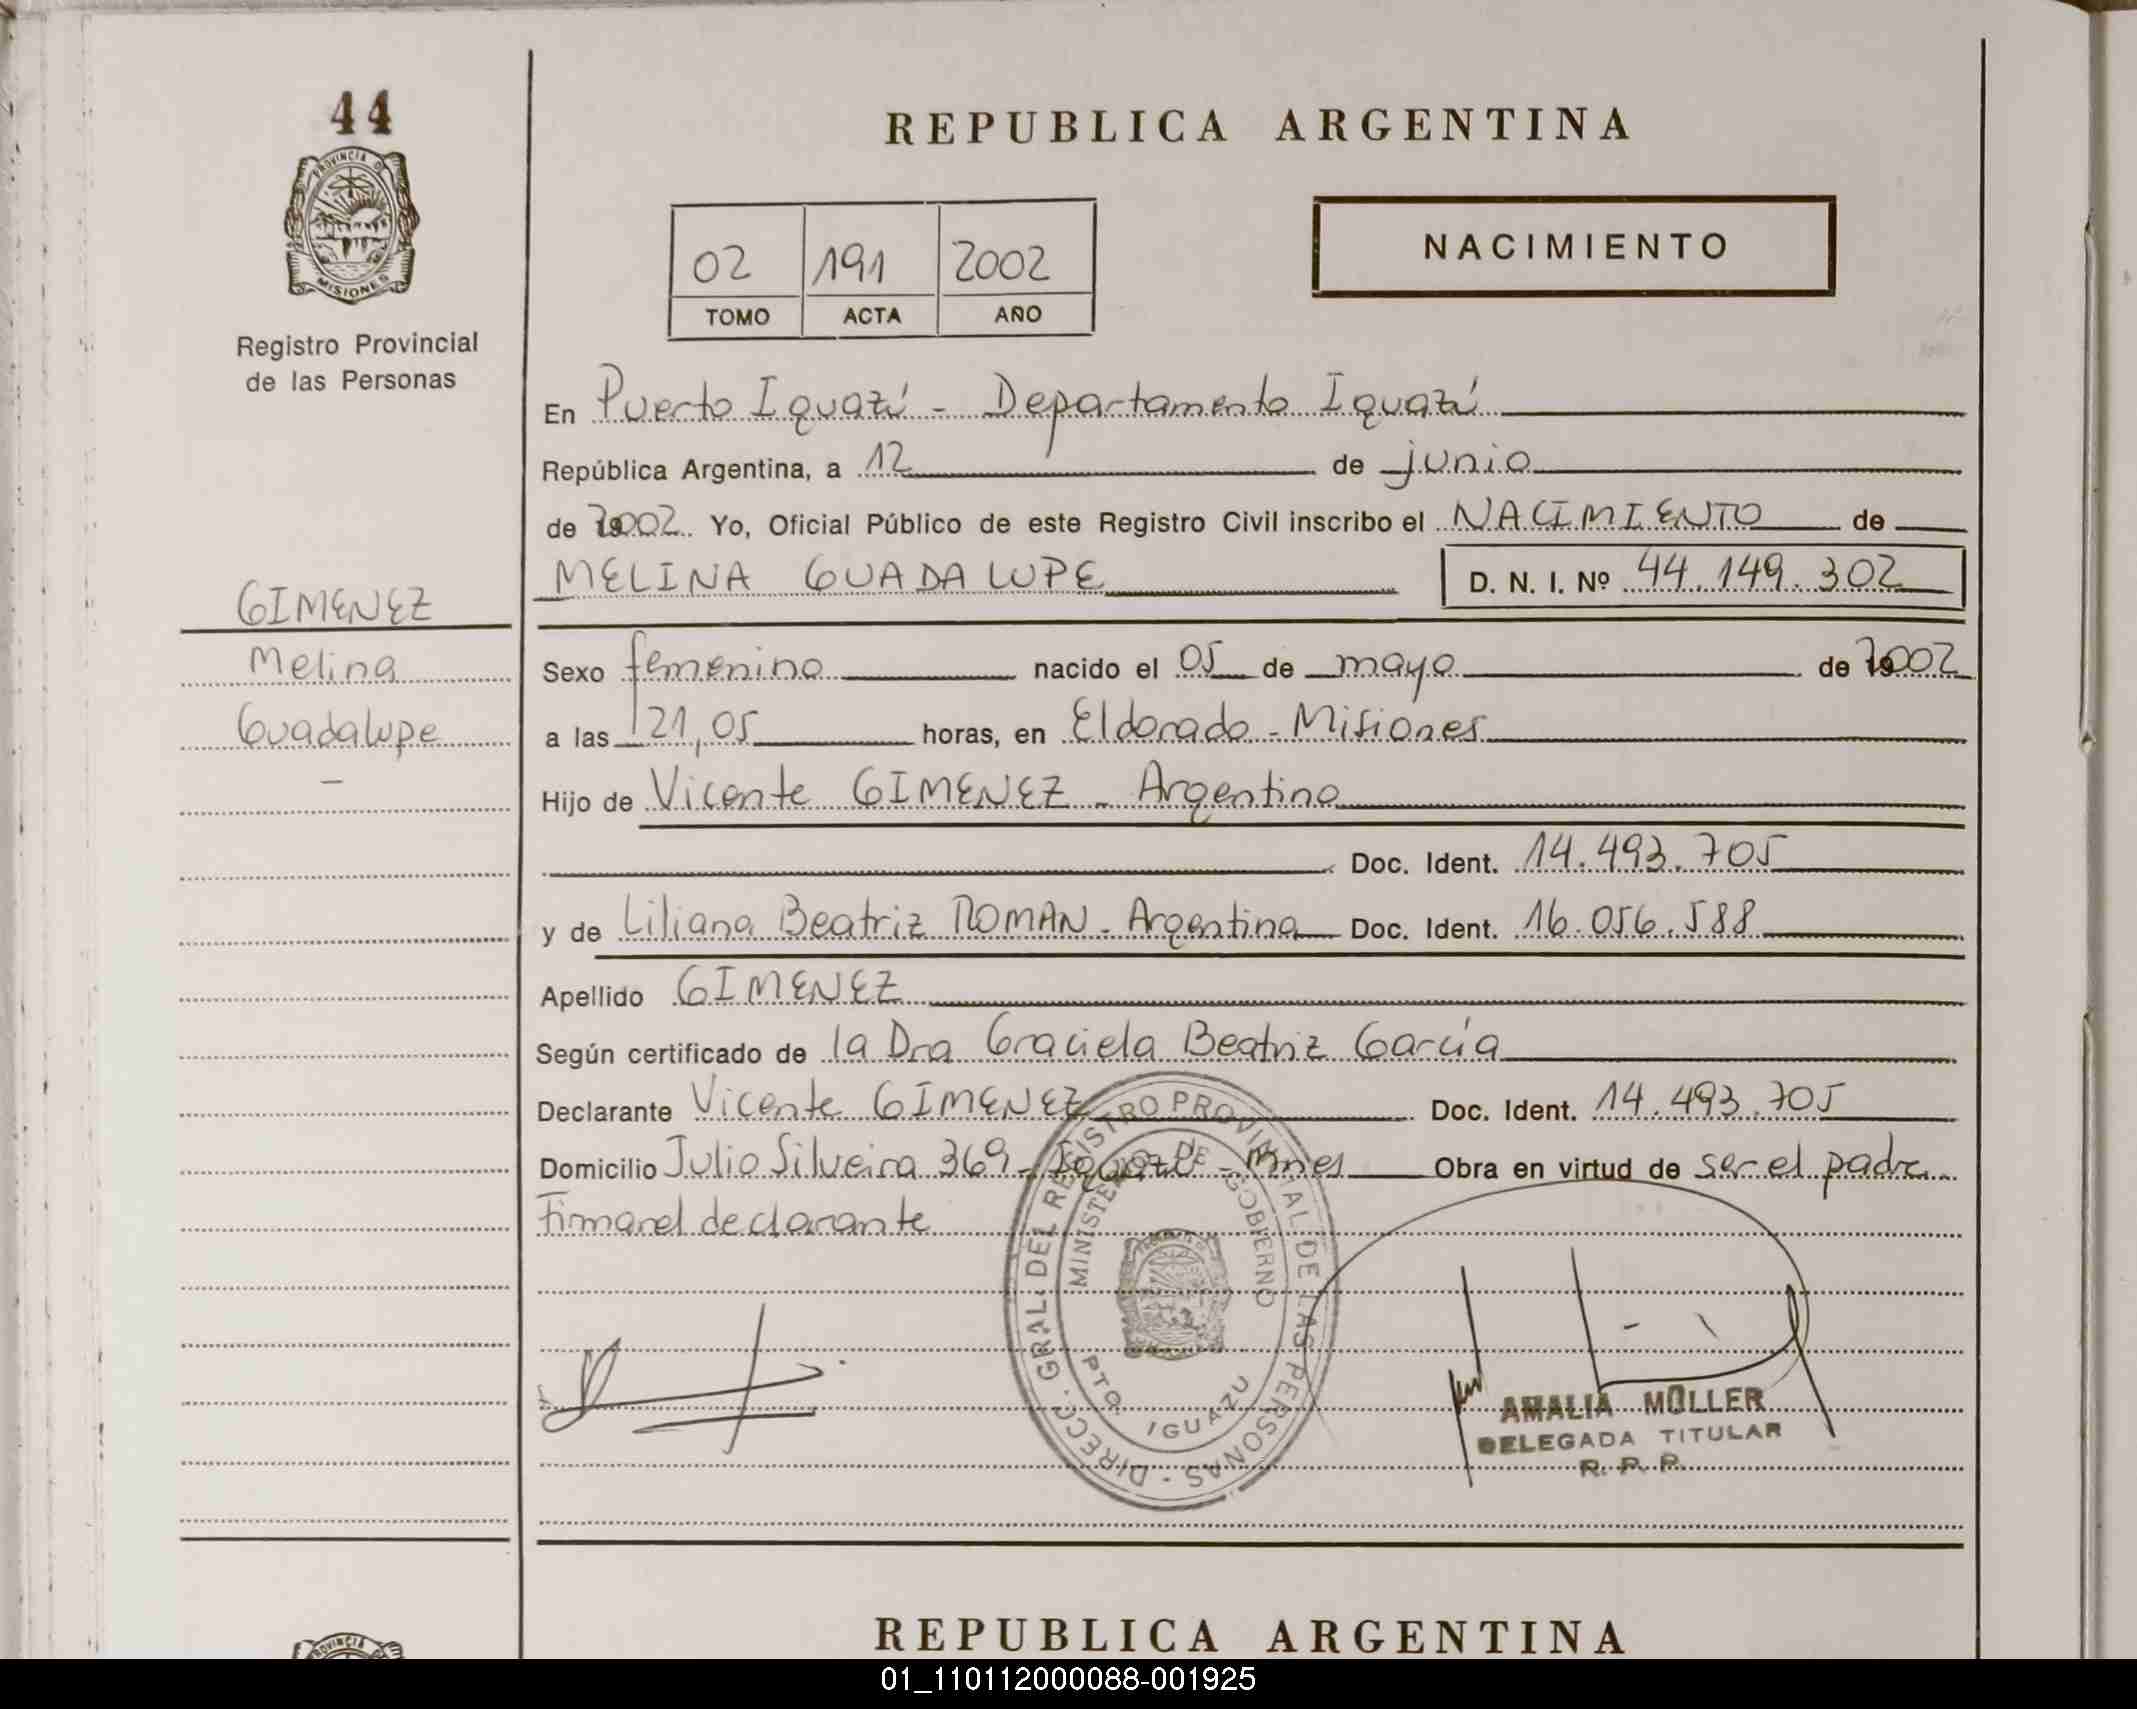 44
PROVINCIA DE
MISIONES
Registro Provincial
de las Personas
REPUBLICA ARGENTINA
02 191 2002
TOMO ACTA AÑO
NACIMIENTO
En Puerto Iguazú - Departamento Iguazú
República Argentina, a 12 de junio
de 2002 Yo, Oficial Público de este Registro Civil inscribo el NACIMIENTO de
MELINA GUADALUPE D. N. I. Nº 44.149.302
GIMENEZ
Melina
Guadalupe
-
Sexo femenino nacido el 05 de mayo de 2002
a las 21,05 horas, en Eldorado - Misiones
Hijo de Vicente GIMENEZ - Argentino
Doc. Ident. 14.493.705
y de Liliana Beatriz ROMAN - Argentina Doc. Ident. 16.056.588
Apellido GIMENEZ
Según certificado de la Dra Graciela Beatriz García
Declarante Vicente GIMENEZ Doc. Ident. 14.493.705
Domicilio Julio Silveira 369 - Iguazú - Mnes Obra en virtud de ser el padre
Firma el declarante
DIRECC. GRAL. DEL REGISTRO PROVINCIAL DE LAS PERSONAS -
MINISTERIO DE GOBIERNO
PTO. IGUAZU
AMALIA MÜLLER
DELEGADA TITULAR
R. P. P.
PROVINCIA
REPUBLICA ARGENTINA
01_110112000088-001925